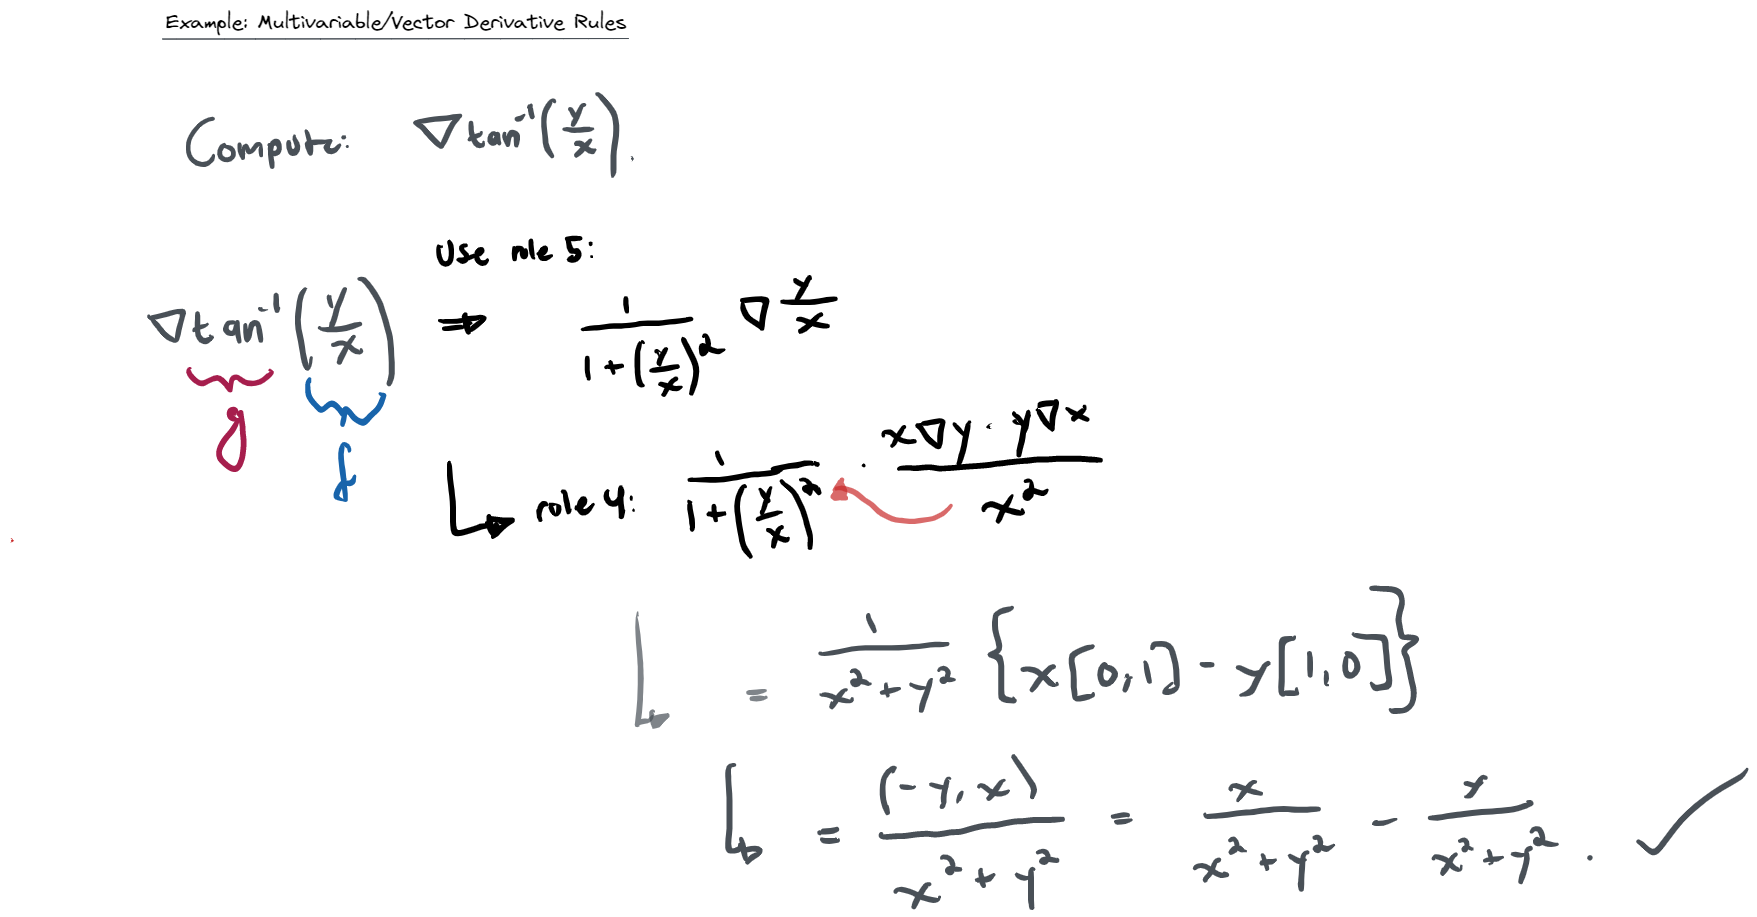 Example: Multivariable/Vector Derivative Rules
Compute: ∇ tan⁻¹(y/x).
Use rule 5:
∇ tan⁻¹(y/x) ⇒ 1/(1+(y/x)²) ∇ y/x
g f
rule 4: 1/(1+(y/x)²) · (x∇y - y∇x)/x²
= 1/(x²+y²) {x[0,1] - y[1,0]}
= (-y, x)/(x²+y²) = x/(x²+y²) - y/(x²+y²). ✓